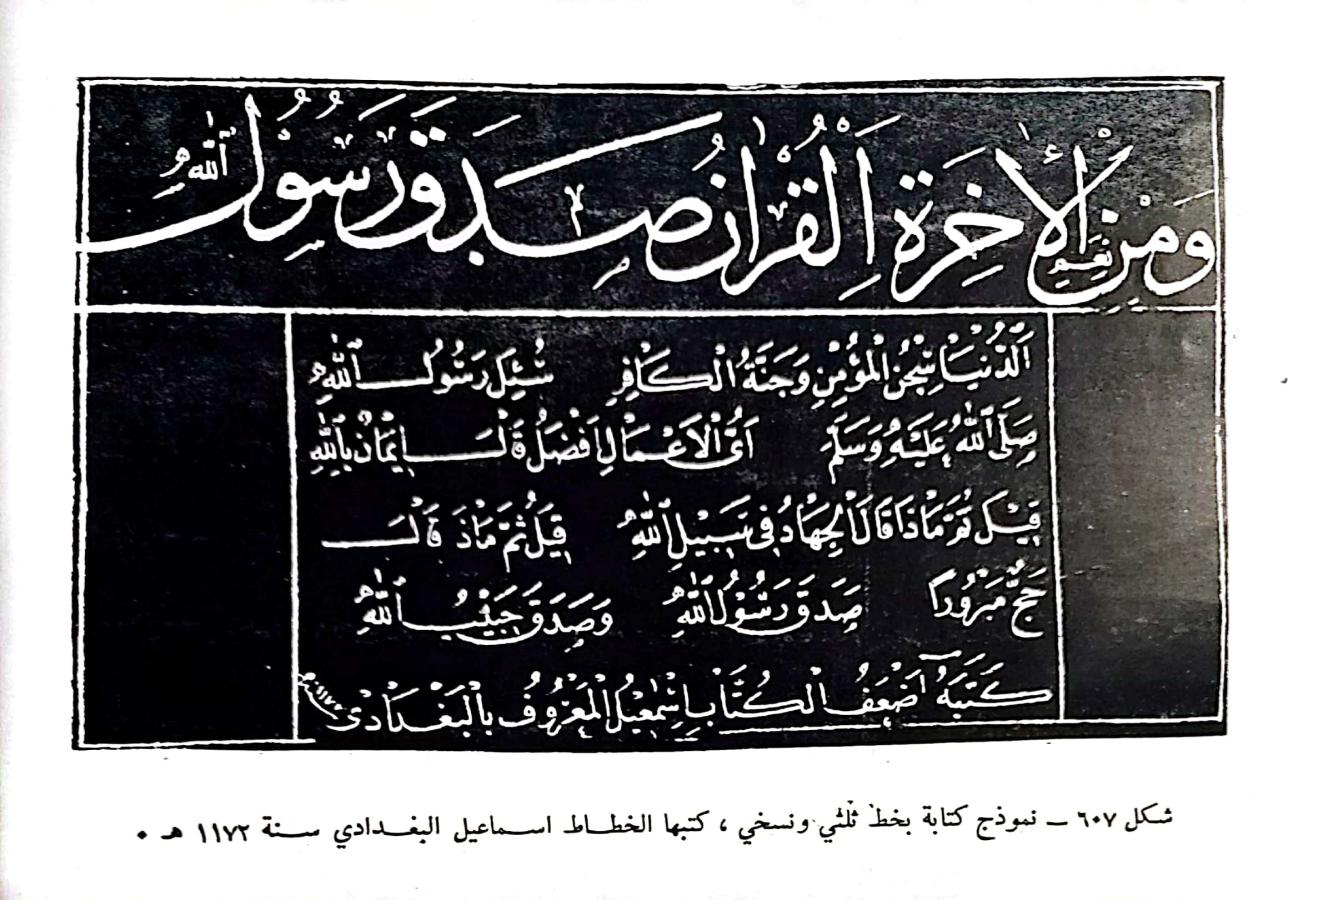 وَمِنْ نَعِيمِ الْاٰخِرَةِ اَلْقُرْاٰنُ صَدَقَ رَسُوُلُ اللّٰهِ
اَلدُّنْيَا سِجْنُ الْمُؤْمِنِ وَجَنَّةُ الْكَافِرِ سُئِلَ رَسُولُ اللّٰهِ
صَلَّى اللّٰهُ عَلَيْهِ وَسَلَّمَ اَىُّ الْاَعْمَالِ اَفْضَلُ قَالَ اِيْمَانٌ بِاللّٰهِ
قِيْلَ ثُمَّ مَاذَا قَالَ اَلْجِهَادُ فِى سَبِيْلِ اللّٰهِ قِيْلَ ثُمَّ مَاذَ قَالَ
حَجٌّ مَبْرُورًا صَدَقَ رَسُوْلُ اللّٰهِ وَصَدَقَ حَبِيْبُ اللّٰهِ
كَتَبَهُ اَضْعَفُ الْكُتَّابِ اِسْمٰعِيْلُ الْمَعْرُوُفُ بِالْبَغْدَادِىْ
شكل ٦٠٧ ــ نموذج كتابة بخط ثلثي ونسخي ، كتبها الخطاط اسماعيل البغدادي سنة ١١٧٢ هـ ٠